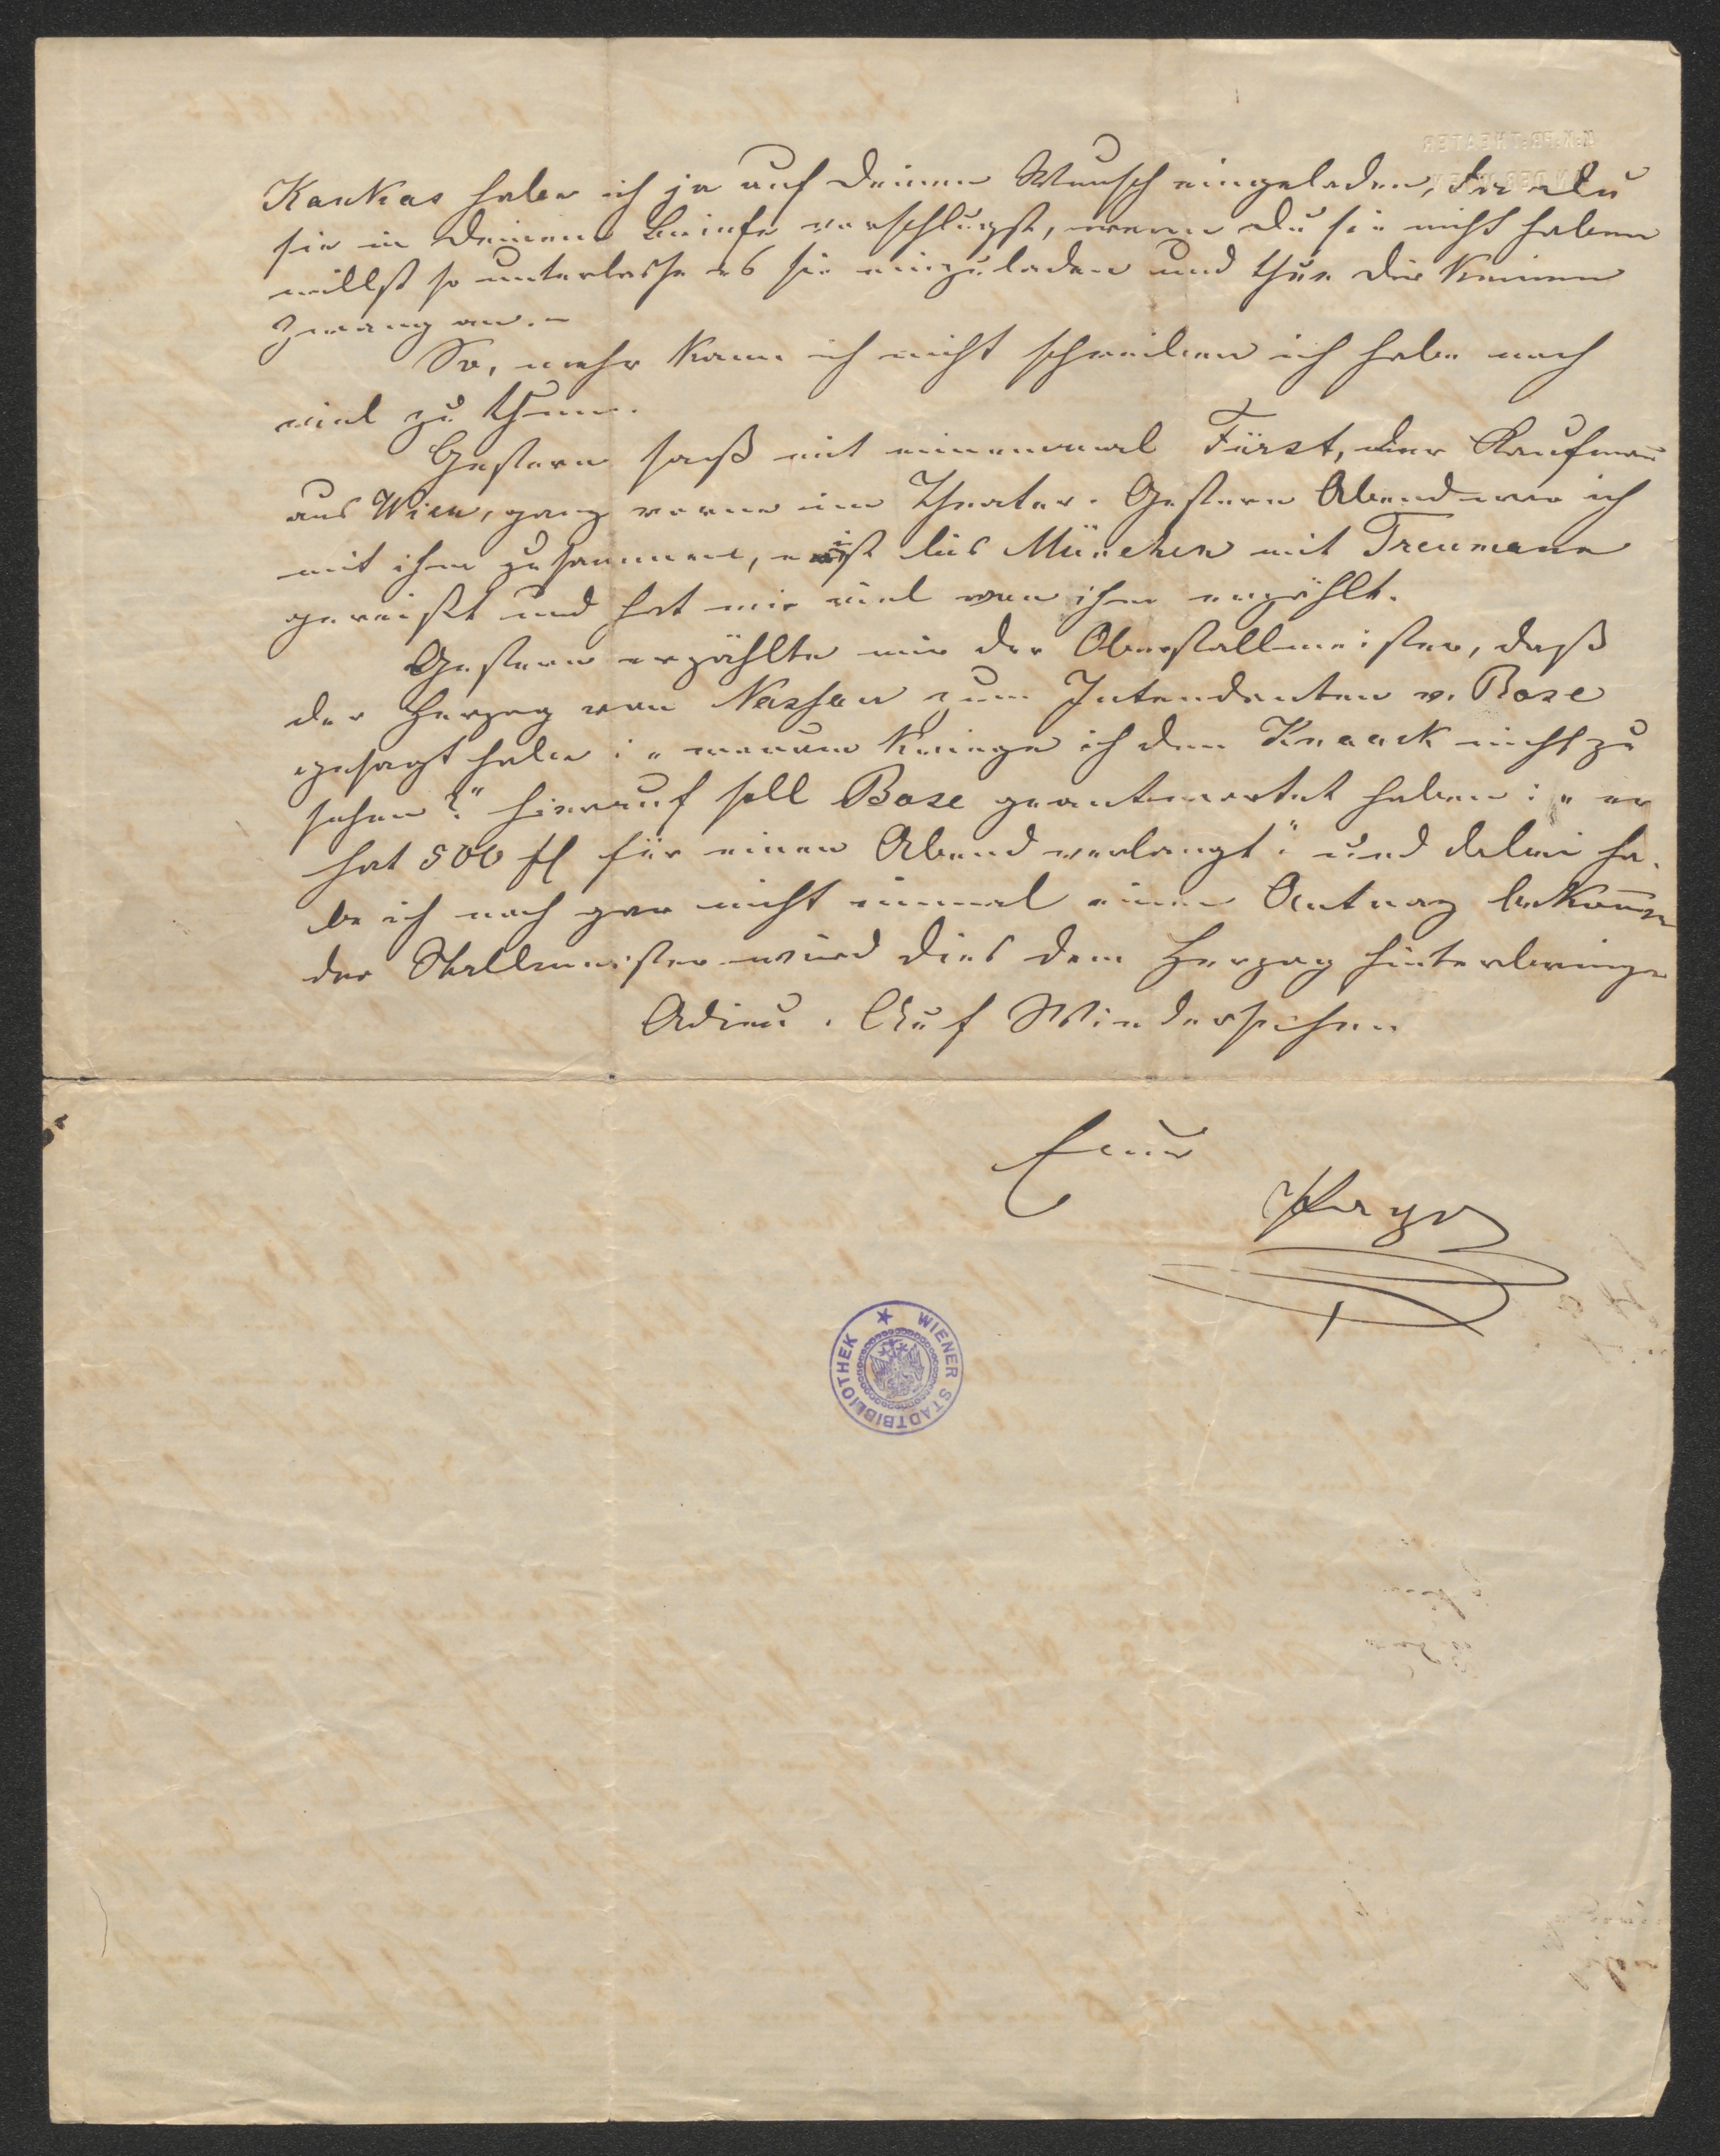 K. K. PR. THEATER
AN DER WIEN
Kaukas habe ich ja auf Deinen Wunsch eingeladen, da du
sie in Deinem Briefe vorschlugst, wenn Du sie nicht haben
willst so unterlasse es sie einzuladen und thue Dir keinen
Zwang an. –
So, mehr kann ich nicht schreiben ich habe noch
viel zu thun.
Gestern saß mit einemmal Fürst, der Kaufmañ
aus Wien, ganz vorne im Theater. Gestern Abend war ich
mit ihm zusammen, er ist bis München mit Treumann
gereißt und hat mir viel von ihm erzählt.
Gestern erzählte mir der Oberstallmeister, daß
der Herzog von Nassau zum Intendanten v. Bose
gesagt habe: „warum kriege ich den Knaack nicht zu
sehen?" hierauf soll Bose geantwortet haben: „er
hat 500 fl für einen Abend verlangt" und dabei ha-
be ich noch gar nicht einmal einen Antrag bekom̄en
der Stallmeister wird dies dem Herzog hinterbringen
Adieu. Auf Wiedersehen
Euer
WIENER STADTBIBLIOTHEK